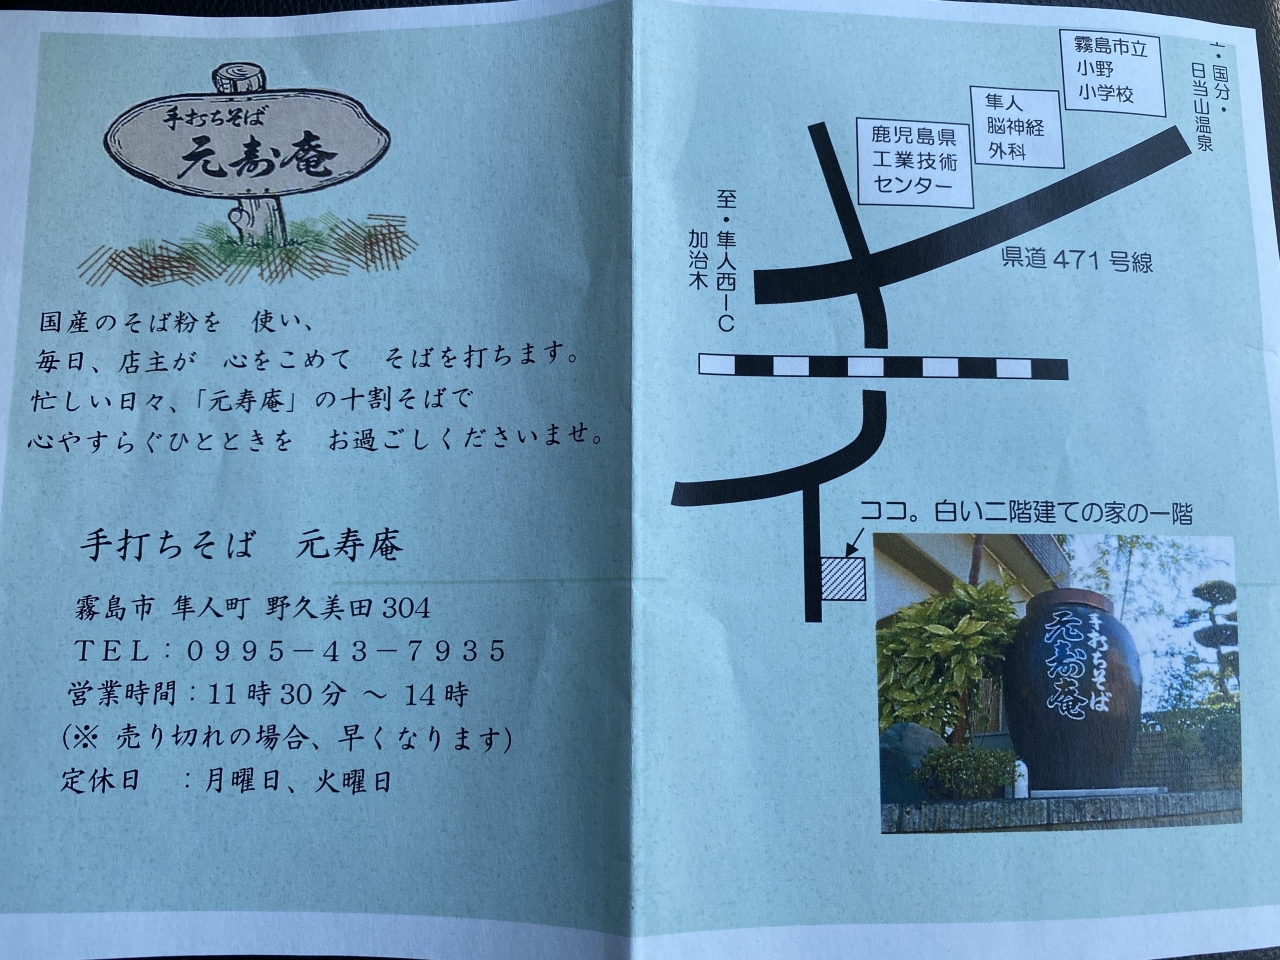 手打ちそば
元寿庵
国産のそば粉を　使い、
毎日、店主が　心をこめて　そばを打ちます。
忙しい日々、「元寿庵」の十割そばで
心やすらぐひとときを　お過ごしくださいませ。
手打ちそば　元寿庵
霧島市 隼人町 野久美田 304
ＴＥＬ：０９９５－４３－７９３５
営業時間：11 時 30 分 ～ 14 時
(※ 売り切れの場合、早くなります)
定休日　：月曜日、火曜日
霧島市立
小野
小学校
隼人
脳神経
外科
鹿児島県
工業技術
センター
国分・
日当山温泉
至・隼人西ＩＣ
加治木
県道 471 号線
ココ。白い二階建ての家の一階
手打ちそば
元寿庵